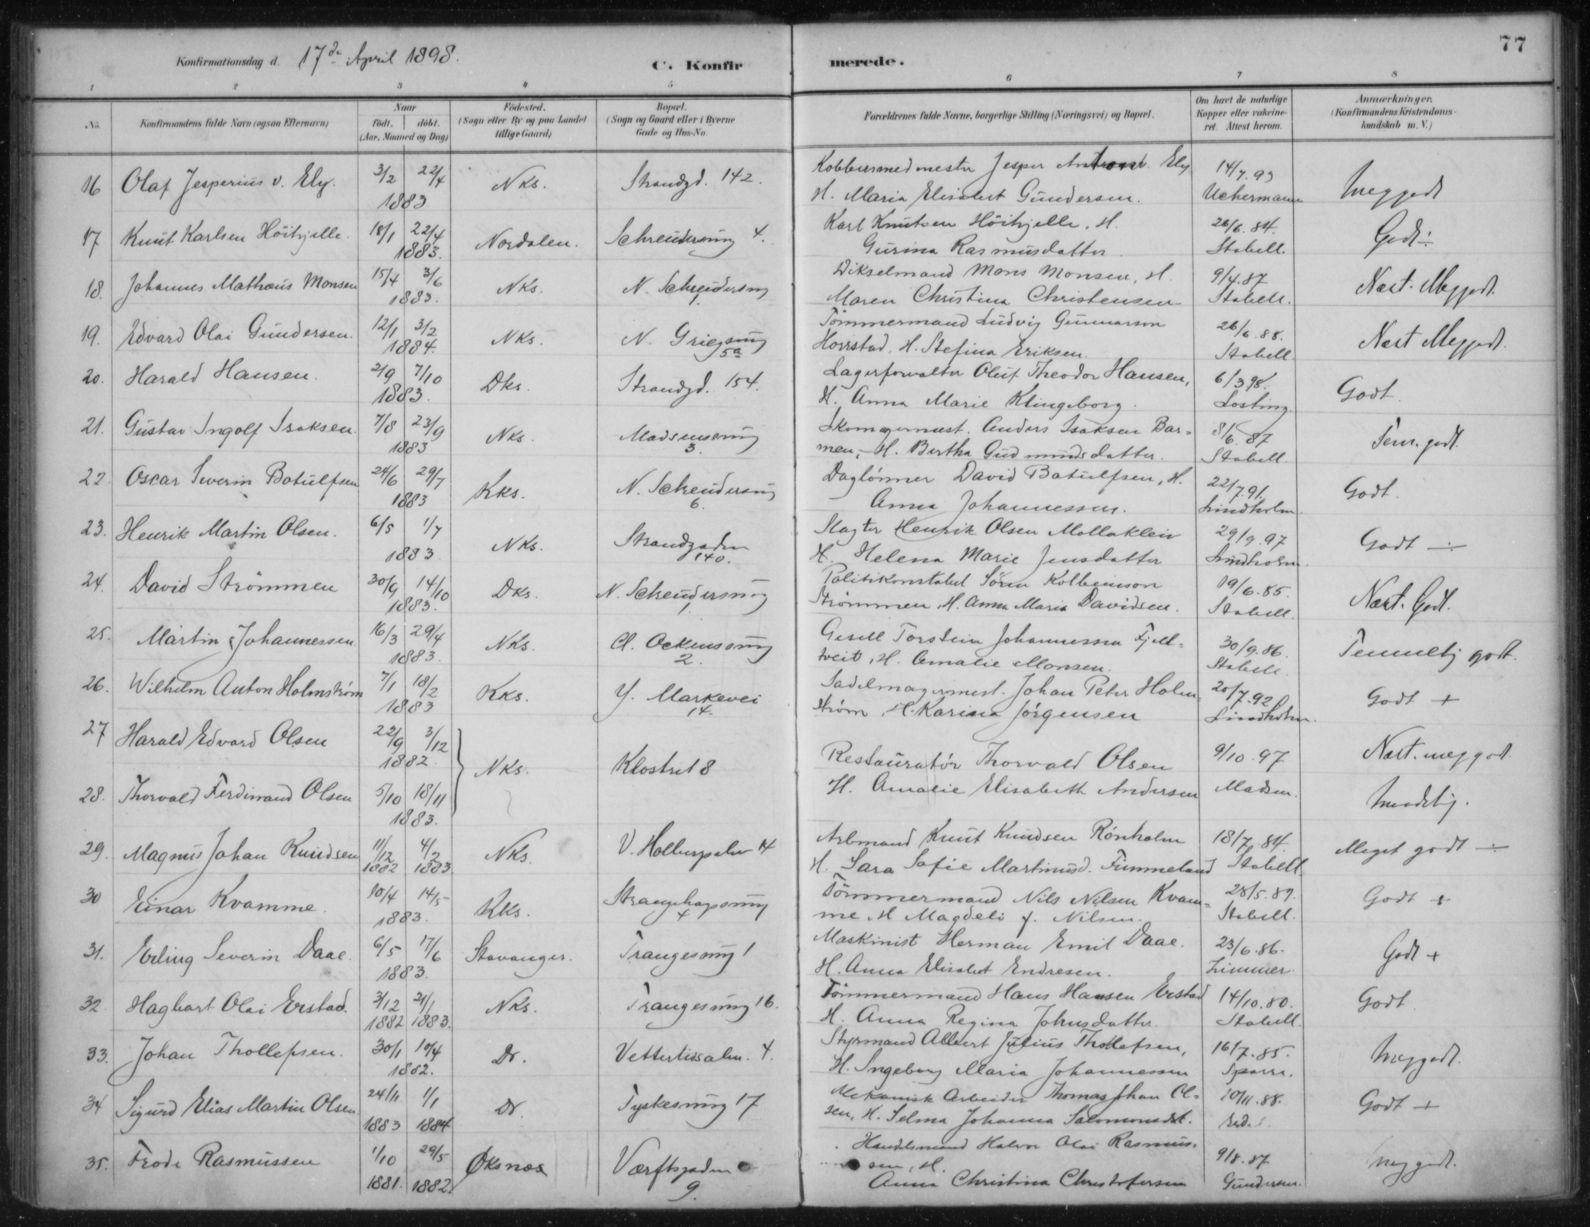 Konfirmationsdag d. 17de April 1898.
C. Konfir merede.
77
1 2 3 4 5 6 7 8
No.
Konfirmandens fulde Navn (ogsaa Efternavn)
Naar
født. døbt.
(Aar, Maaned og Dag)
Fødested.
(Sogn eller By og paa Landet
tillige Gaard)
Bopæl.
(Sogn og Gaard eller i Byerne
Gade og Hus-No.
Forældrenes fulde Navne, borgerlige Stilling (Næringsvei) og Bopæl.
Om havt de naturlige
Kopper eller vakcine-
ret. Attest herom.
Anmærkninger.
(Konfirmandens Kristendoms-
kundskab m. V.)
16 Olaf Jesperius v. Ely. 3/2 22/4 1883 Nks. Strandgd. 142.
Kobbersmedmester Jesper Antoni Ely
H. Maria Elisabet Gundersen.
14/7.93 Uchermann
Meg godt
17 Knut Karlsen Höihjelle. 18/1 22/4 1883. Nordalen. Schreudersmug 4.
Karl Knutsen Höihjelle, H.
Gurina Rasmusdatter
26/6.84. Stabell.
Godt ÷
18. Johannes Mathæus Monsen 15/4 3/6 1883. Nks. N. Schreudersmug
Mons Monsen, H.
Maren Christina Christensen
9/4.87 Stabell.
Næst. Meggodt.
19. Edvard Olai Gundersen. 12/1 3/2 1884. Nks. N. Griegsmug 5a
Tömmermand Ludvig Gunnarson
H. Stefina Eriksen.
26/6.88. Stabell
Næst Meggodt.
20. Harald Hansen. 21/9 7/10 1883. Dks. Strandgd. 154.
Lagerforvalter Oluf Theodor Hansen,
H. Anna Marie Klingeborg.
6/3 98.
Godt.
21. Gustav Ingolf Isaksen. 7/8 23/9 1883 Nks. Madsensmug 3.
Skomagermest. Anders Isaksen Bar-
men, H. Bertha Gudmundsdatter.
8/6.87 Stabell.
Tem. godt.
22. Oscar Severin Botulfsen 24/6 29/7 1883 Kks. N. Schreudersmug 6.
Daglønner David Botulfsen, H.
Anna Johannessen.
22/7.91. Lindholm.
Godt.
23. Henrik Martin Olsen. 6/5 1/7 1883. Nks. Strandgaden 140.
Slagter Henrik Olsen Mollaklein
H. Helena Marie Jensdatter
29/9.97 Lindholm.
Godt ÷
24. David Strømmen 30/9 14/10 1883. Dks. N. Schreudersmug 1
Politikonstabel Sören Kolbeinson
Strømmen, H. Anna Maria Davidsen.
19/6.85. Stabell.
Næst. Godt.
25. Martin Johannessen 16/3 29/4 1883. Nks. Cl. Ockensmug 2.
Gesell Torstein Johannessen Fjell-
tveit, H. Amalie Monsen.
30/9.86. Stabell
Temmelig godt.
26. Wilhelm Anton Holmstrøm 7/1 18/2 1883 Kks. Y. Markevei 14.
Sadelmagermest. Johan Peter Holm-
strøm, H. Karina Jørgensen
20/7.92 Lindholm.
Godt +
27 Harald Edvard Olsen 22/9 3/12 1882.
28. Thorvald Ferdinand Olsen 5/10 18/11 1883.
Nks. Klostret 8
Restauratør Thorvald Olsen
H. Amalie Elisabeth Andersen
9/10.97 Madsen.
Næst. meg godt.
Maadelig.
29. Magnus Johan Knudsen 11/12 1882 4/2 1883. Nks. V. Holbergsalm 14
Arbmand Knut Knudsen Rönholm
H. Sara Sofie Martinusd. Fimmeland
18/7.84. Stabell
Meget godt ÷
30 Einar Kvamme. 10/4 14/5 1883. Kks. Strangehagsmug 4
Tömmermand Nils Nilsen Kvam-
me, H Magdeli f. Nilsen.
28/5.89. Stabell.
Godt +
31. Erling Severin Daae. 6/5 17/6 1883. Stavanger. Trangesmug 1
Maskinist Herman Emil Daae.
H. Anna Elisabet Endresen.
23/6.86. Zimmer
Godt +
32. Hagbart Olai Erstad. 3/12 1882 21/1 1883. Nks. Trangesmug 16.
Tömmermand Hans Hansen Erstad
H. Anna Regina Johnsdatter.
14/10.80. Stabell.
Godt
33. Johan Thollefsen. 30/1 10/4 1882. Do. Vetterlisalm. 4.
Styrmand Albert Julius Thollefsen,
H. Ingeborg Maria Johannessen
16/7.85. Sparre.
Meggodt.
34 Sigurd Elias Martin Olsen 24/11 1883 1/1 1884 Do. Tyskesmug 17
Mekanisk Arbeider Thomas Johan Ol-
sen, H. Selma Johanna Salomonsdt.
10/11.88.
Godt +
35. Frode Rasmussen 1/10 1881. 29/5 1882. Øksnes Værftsgaden 9.
Handelsmand Halvor Olai Rasmus-
sen, H.
Anna Christina Christofersen
9/8.87 Gundersen.
Meg godt.